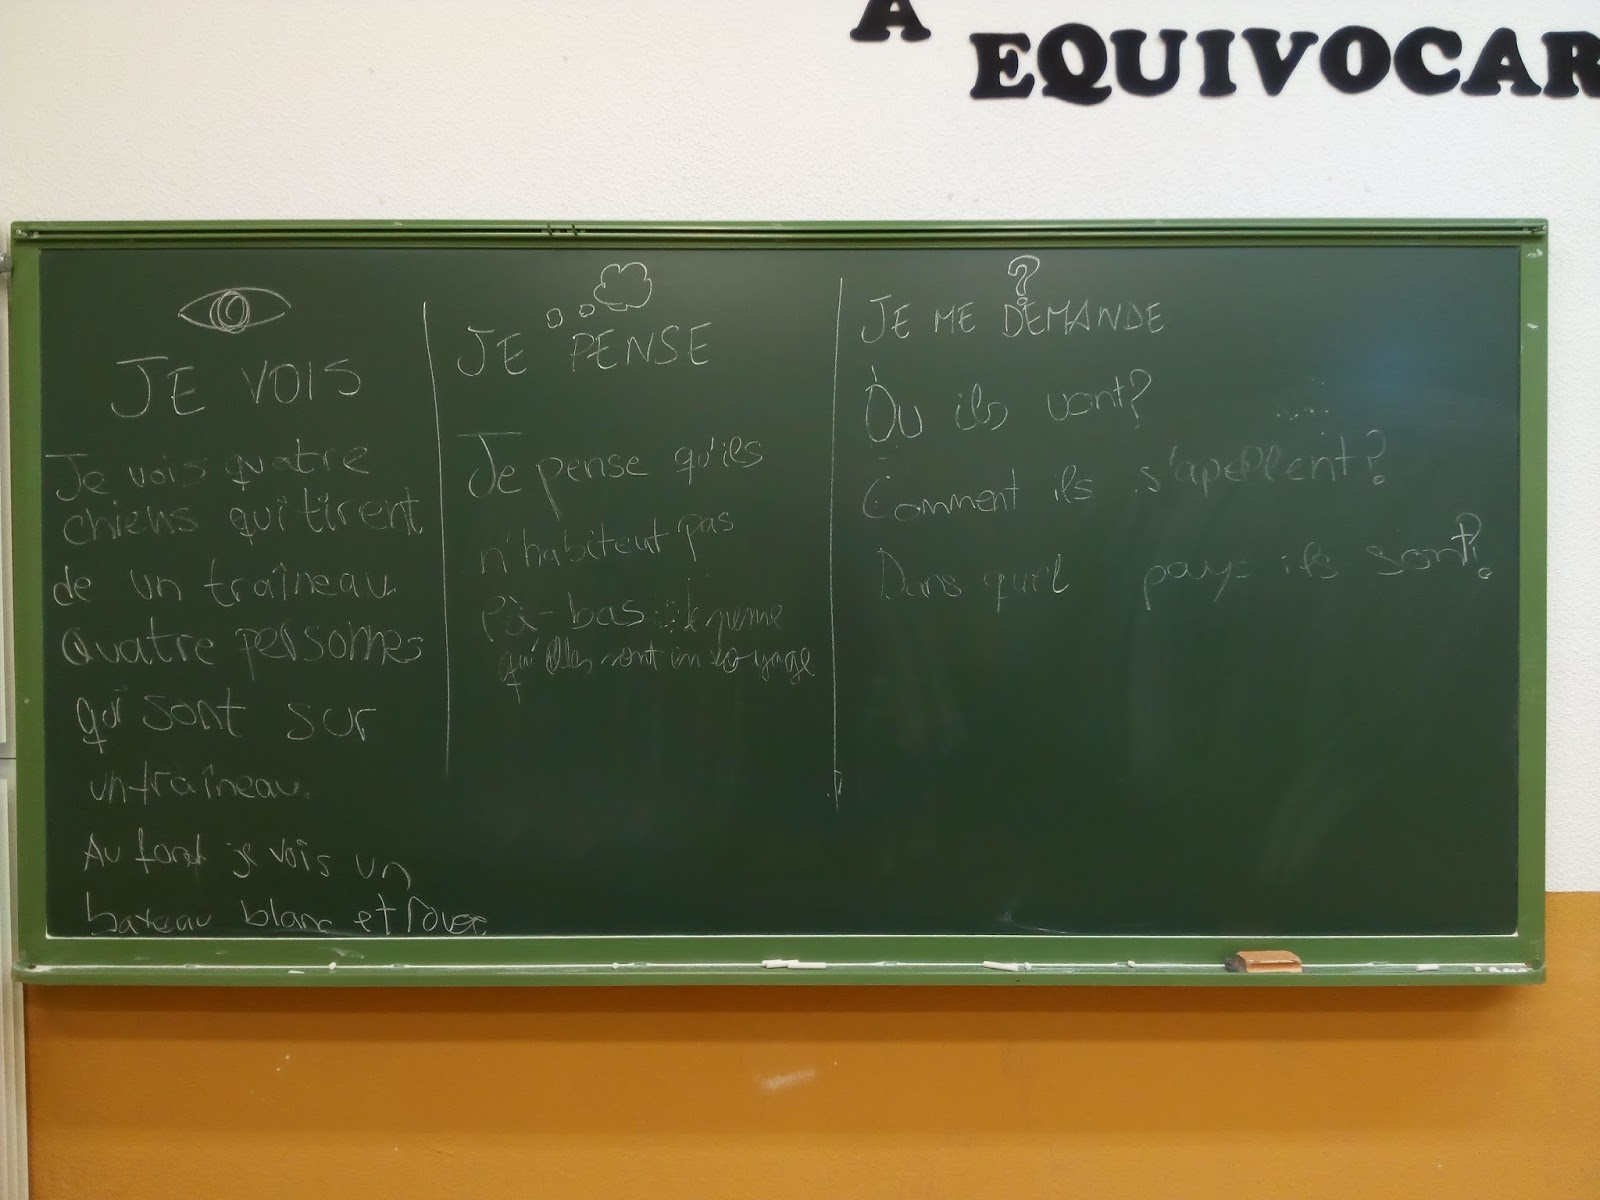 A
EQUIVOCAR
JE VOIS
Je vois quatre
chiens qui tirent
de un traîneau.
Quatre personnes
qui sont sur
un traîneau.
Au fond je vois un
bateau blanc et rouge
JE PENSE
Je pense qu'ils
n'habitent pas
là-bas je pense
qu'elles sont en voyage
?
JE ME DEMANDE
Où ils vont?
Comment ils s'apellent?
Dans quel pays ils sont?